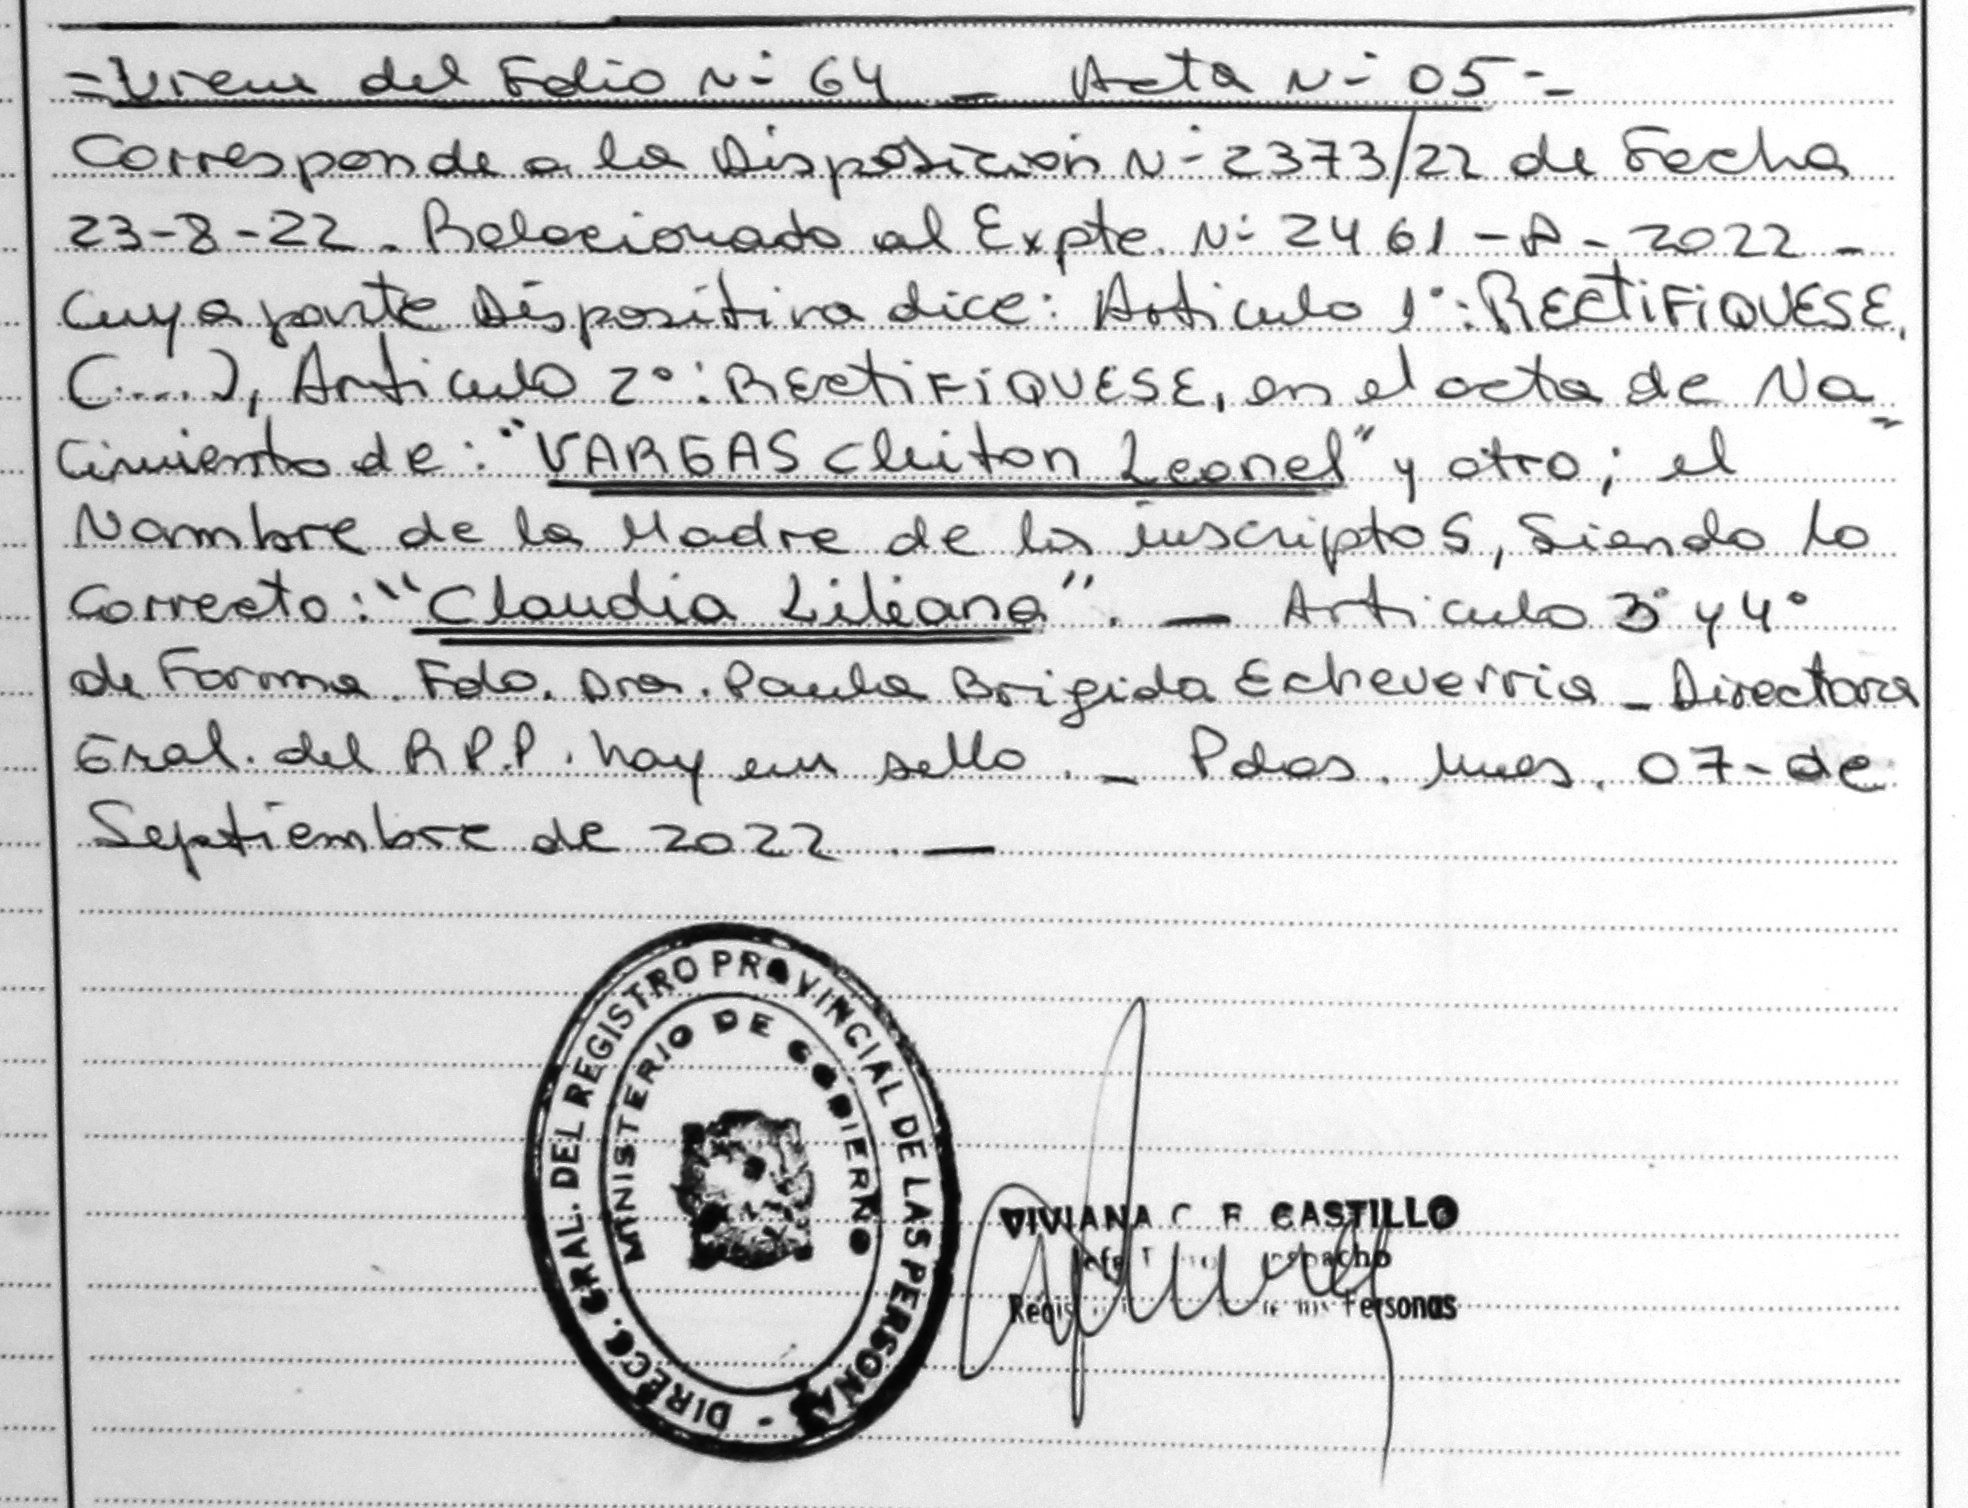 =Viene del Folio N- 64 _ Acta N- 05-=
Corresponde a la Disposición N- 2373/22 de Fecha
23-8-22. Relacionado al Expte. N- 2461-P-2022-
Cuya parte Dispositiva dice: Articulo 1°: RECTIFIQUESE,
(....), Articulo 2°: RECTIFIQUESE, en el acta de Na-
cimiento de: "VARGAS Chiton Leonel" y otro; el
Nombre de la Madre de los inscriptos, Siendo lo
Correcto: "Claudia Liliana". — Articulo 3° y 4°
de Forma. Fdo. Dra. Paula Brigida Echeverria _ Directora
Gral. del R.P.P. hay un sello. _ Pdas. 07-de
Septiembre de 2022. —
DIRECC. GRAL. DEL REGISTRO PROVINCIAL DE LAS PERSONAS -
MINISTERIO DE GOBIERNO
VIVIANA C. F. CASTILLO
Personas